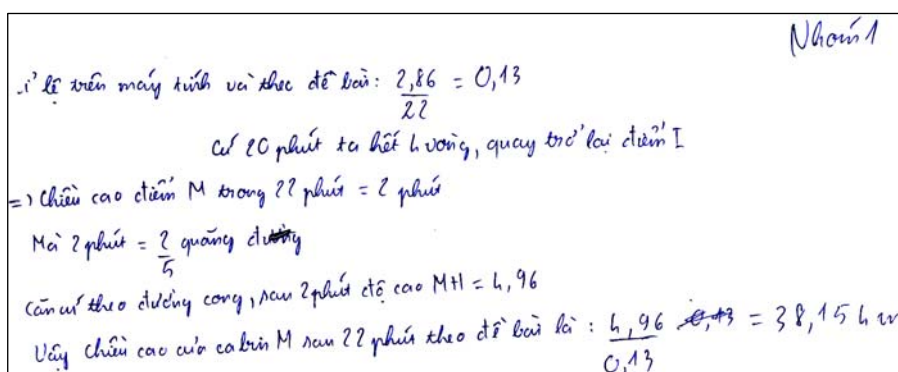 Nhóm 1
tỉ lệ trên máy tính và theo đề bài: 2,86/22 = 0,13
cứ 20 phút ta hết 4 vòng, quay trở lại điểm I
=> Chiều cao điểm M trong 22 phút = 2 phút
Mà 2 phút = 2/5 quãng đường
Căn cứ theo đường cong, sau 2 phút độ cao MH = 4,96
Vậy chiều cao của cabin M sau 22 phút theo đề bài là: 4,96/0,13 = 38,154 m